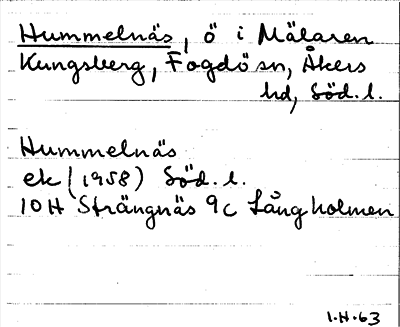 Hummelnäs, ö i Mälaren
Kungsberg, Fogdö sn, Åkers
hd, Söd. l.
Hummelnäs
ek (1958) Söd. l.
10H Strängnäs 9c Långholmen
1.H.63